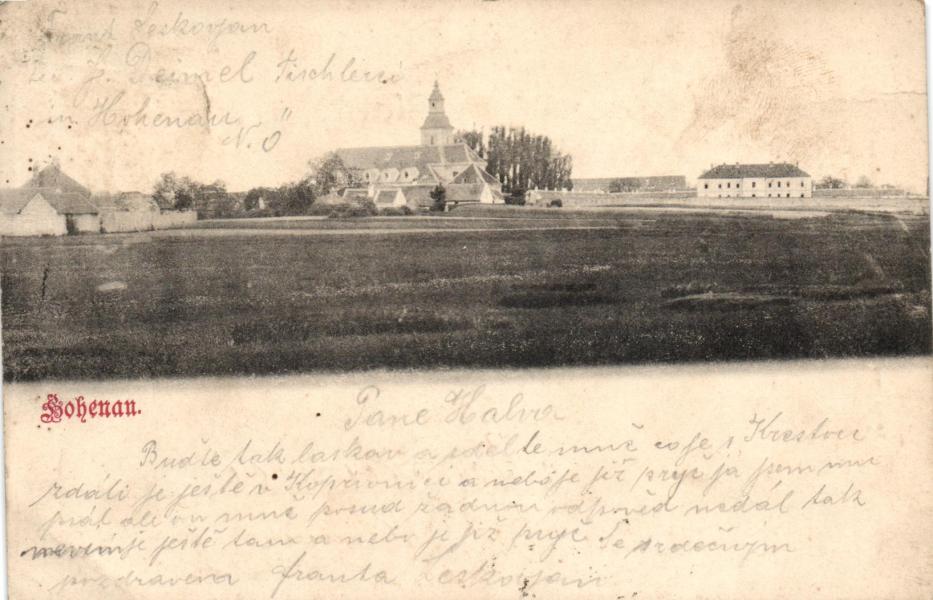 Leskovjan
J. Deimel Tischlerei
in Hohenau
N. O
Hohenau.
Pane Halva
Buďte tak laskav a sdělte mně co je s
zdáli je ještě v Kopřivnici a nebo je již pryč ja jsem mu
psal ale on mně posud žadnou odpověd nedál tak
nevím je ještě tam a nebo je již pryč Se srdečnym
pozdravem Franta Leskovjan